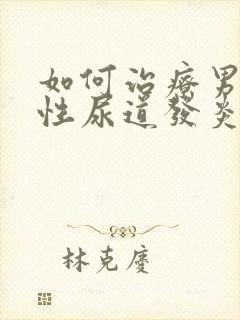 如何治療男
性尿道發炎
林克慶